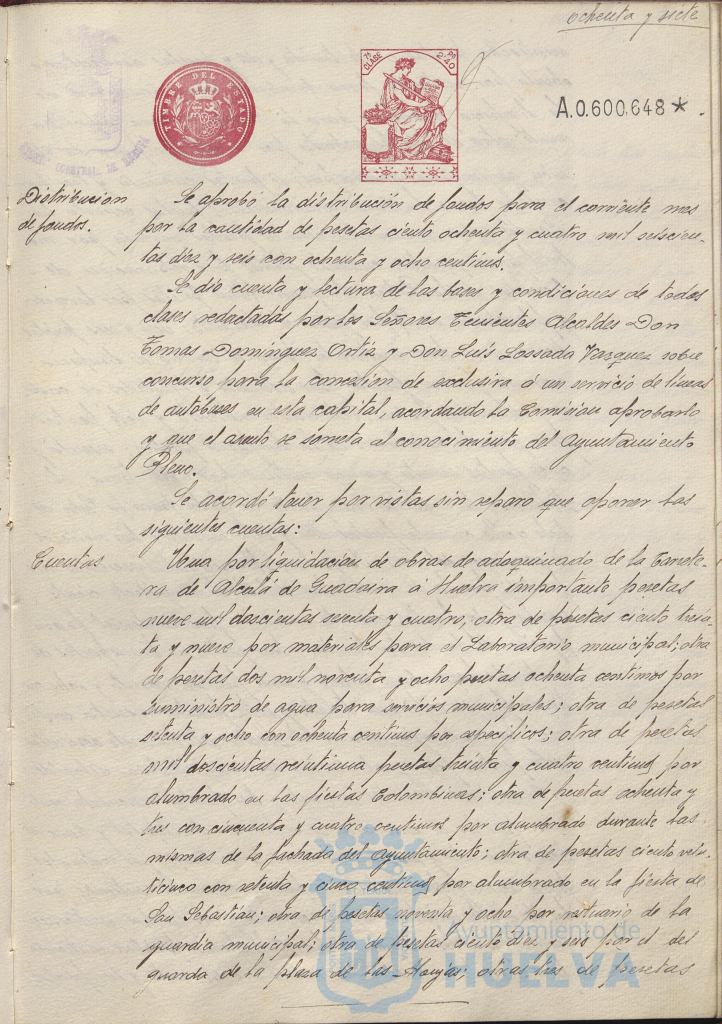 ochenta y siete
TIMBRE DEL ESTADO
7ª CLASE
2'40
A.0.600,648 *
Distribucion
de fondos.
Se aprobó la distribución de fondos para el corriente mes
por la cantidad de pesetas ciento ochenta y cuatro mil seiscien-
tas diez y seis con ochenta y ocho centimos.
Se dio cuenta y lectura de las bases y condiciones de todas
clases redactadas por los Señores Tenientes Alcaldes Don
Tomas Domínguez Ortiz y Don Luis Lossada Vazquez sobre
concurso para la concesion de exclusiva á un servicio de lineas
de autóbuses en esta capital, acordando la Comision aprobarlo
y que el asunto se someta al conocimiento del Ayuntamiento
Pleno.
Se acordó tener por vistas sin reparo que oponer las
siguientes cuentas:
Cuentas
Una por liquidacion de obras de adoquinado de la Carrete-
ra de Alcalá de Guadaira á Huelva importante pesetas
nueve mil doscientas sesenta y cuatro, otra de pesetas ciento trein-
ta y nueve por materiales para el Laboratorio municipal; otra
de pesetas dos mil noventa y ocho pesetas ochenta centimos por
suministro de agua para servicios municipales; otra de pesetas
setenta y ocho con ochenta centimos por especificos; otra de pesetas
mil doscientas veintiuna pesetas treinta y cuatro centimos por
alumbrado en las fiestas Colombinas; otra de pesetas ochenta y
tres con cincuenta y cuatro centimos por alumbrado durante las
mismas de la fachada del Ayuntamiento; otra de pesetas ciento vein-
ticinco con setenta y cinco centimos por alumbrado en la fiesta de
San Sebastian; otra de pesetas noventa y ocho por vestuario de la
guardia municipal; otra de pesetas ciento diez y seis por el del
guarda de la plaza de las Monjas; otras tres de pesetas
Ayuntamiento de
HUELVA